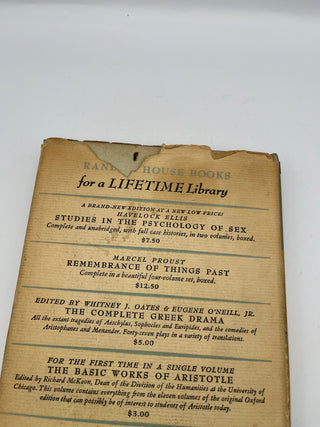 RANDOM HOUSE BOOKS
for a LIFETIME Library
A BRAND-NEW EDITION AT A NEW LOW PRICE!
HAVELOCK ELLIS
STUDIES IN THE PSYCHOLOGY OF SEX
Complete and unabridged, with full case histories, in two volumes, boxed.
$7.50
MARCEL PROUST
REMEMBRANCE OF THINGS PAST
Complete in a beautiful four-volume set, boxed.
$12.50
EDITED BY WHITNEY J. OATES & EUGENE O'NEILL, JR.
THE COMPLETE GREEK DRAMA
All the extant tragedies of Aeschylus, Sophocles and Euripides, and the comedies of
Aristophanes and Menander. Forty-seven plays in a variety of translations.
$5.00
FOR THE FIRST TIME IN A SINGLE VOLUME
THE BASIC WORKS OF ARISTOTLE
Edited by Richard McKeon, Dean of the Division of the Humanities at the University of
Chicago. This volume contains everything from the eleven volumes of the original Oxford
edition that can possibly be of interest to students of Aristotle today.
$3.00